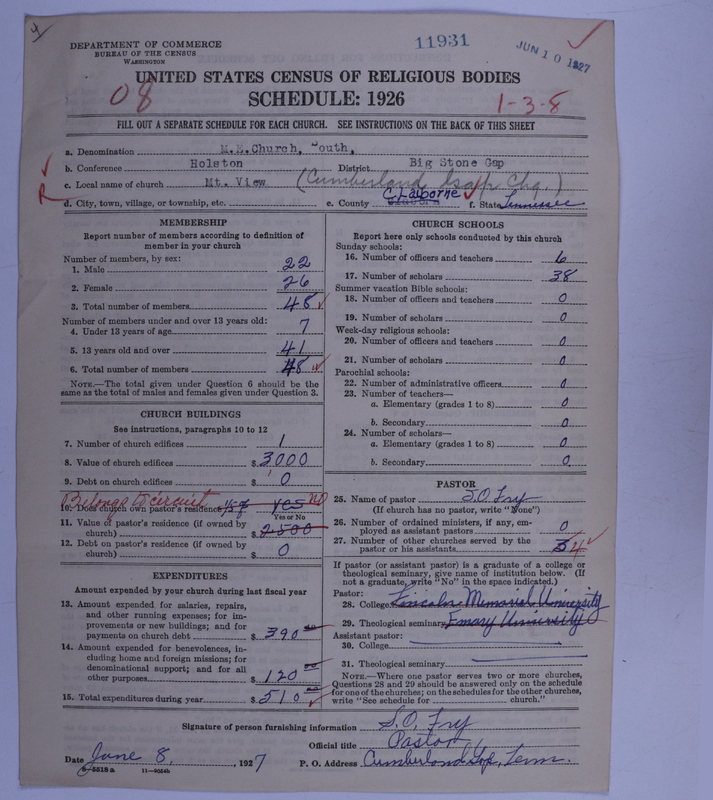 DEPARTMENT OF COMMERCE
BUREAU OF THE CENSUS
WASHINGTON
11931
JUN 10 1927
UNITED STATES CENSUS OF RELIGIOUS BODIES
08
SCHEDULE: 1926
1-3-8
FILL OUT A SEPARATE SCHEDULE FOR EACH CHURCH. SEE INSTRUCTIONS ON THE BACK OF THIS SHEET
a. Denomination M.E.Church, South,
b. Conference Holston District Big Stone Gap
c. Local name of church Mt. View (Cumberland Gap Chg.)
R d. City, town, village, or township, etc. e. County Claiborne f. State Tennessee
MEMBERSHIP
Report number of members according to definition of
member in your church
Number of members, by sex:
1. Male 22
2. Female 26
3. Total number of members 48
Number of members under and over 13 years old:
4. Under 13 years of age 7
5. 13 years old and over 41
6. Total number of members 48
NOTE.—The total given under Question 6 should be the
same as the total of males and females given under Question 3.
CHURCH BUILDINGS
See instructions, paragraphs 10 to 12
7. Number of church edifices 1
8. Value of church edifices $ 3000
9. Debt on church edifices $ 0
Belongs to circuit
10. Does church own pastor's residence? yes No
Yes or No
11. Value of pastor's residence (if owned by
church) $ 2500
12. Debt on pastor's residence (if owned by
church) $ 0
EXPENDITURES
Amount expended by your church during last fiscal year
13. Amount expended for salaries, repairs,
and other running expenses; for im-
provements or new buildings; and for
payments on church debt $ 390 00
14. Amount expended for benevolences, in-
cluding home and foreign missions; for
denominational support; and for all
other purposes $ 120 00
15. Total expenditures during year $ 510 00
CHURCH SCHOOLS
Report here only schools conducted by this church
Sunday schools:
16. Number of officers and teachers 6
17. Number of scholars 38
Summer vacation Bible schools:
18. Number of officers and teachers 0
19. Number of scholars 0
Week-day religious schools:
20. Number of officers and teachers 0
21. Number of scholars 0
Parochial schools:
22. Number of administrative officers 0
23. Number of teachers—
a. Elementary (grades 1 to 8) 0
b. Secondary 0
24. Number of scholars—
a. Elementary (grades 1 to 8) 0
b. Secondary 0
PASTOR
25. Name of pastor S.O. Fry
(If church has no pastor, write "None")
26. Number of ordained ministers, if any, em-
ployed as assistant pastors 0
27. Number of other churches served by the
pastor or his assistants 4
If pastor (or assistant pastor) is a graduate of a college or
theological seminary, give name of institution below. (If
not a graduate, write "No" in the space indicated.)
Pastor:
28. College Lincoln Memorial University
29. Theological seminary Emary University
Assistant pastor:
30. College
31. Theological seminary
NOTE.—Where one pastor serves two or more churches,
Questions 28 and 29 should be answered only on the schedule
for one of the churches; on the schedules for the other churches,
write "See schedule for church."
Signature of person furnishing information S.O. Fry
Official title Pastor
Date June 8, 1927 P. O. Address Cumberland Gap, Tenn.